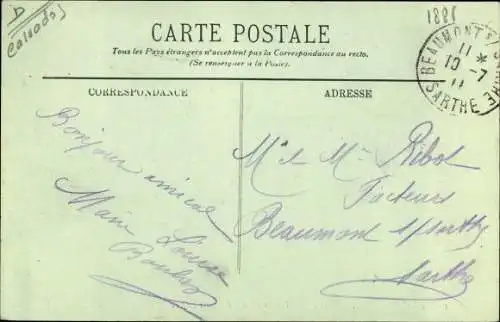 D
Calvados
1881
CARTE POSTALE
Tous les Pays étrangers n'acceptent pas la Correspondance au recto.
(Se renseigner à la Poste).
BEAUMONT S/ SARTHE
11
10 -7
11
SARTHE
CORRESPONDANCE
ADRESSE
Bonjour amical
Marie Louise
M. & Mme Ribot
Facteurs
Beaumont s/sarthe
Sarthe